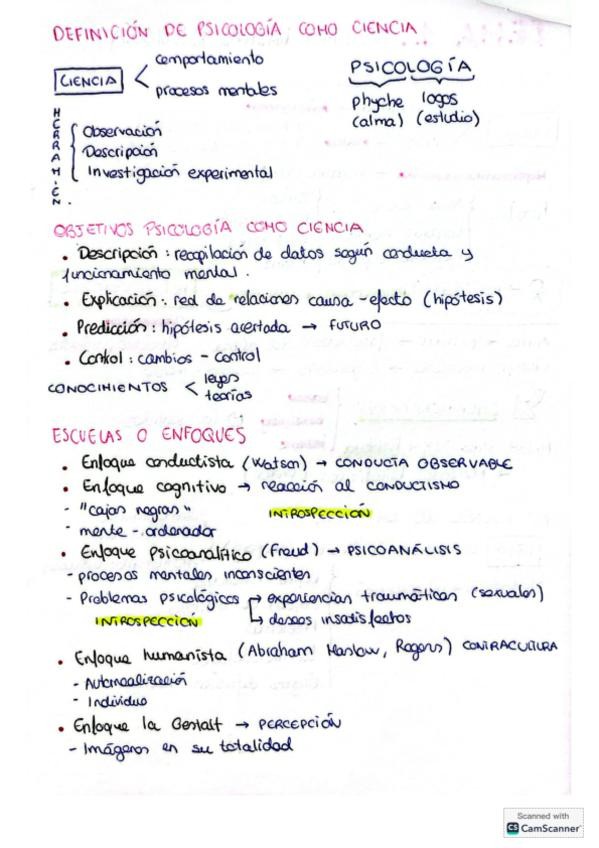 DEFINICIÓN DE PSICOLOGÍA COMO CIENCIA
CIENCIA < comportamiento
procesos mentales
PSICOLOGÍA
phyche logos
(alma) (estudio)
HERRAMIEN.
Observación
Descripción
Investigación experimental
OBJETIVOS PSICOLOGÍA COMO CIENCIA
• Descripción: recopilación de datos según conducta y
funcionamiento mental.
• Explicación: red de relaciones causa-efecto (hipótesis)
• Predicción: hipótesis acertada → FUTURO
• Control: cambios - control
CONOCIMIENTOS < leyes
teorías
ESCUELAS O ENFOQUES
• Enfoque conductista (Watson) → CONDUCTA OBSERVABLE
• Enfoque cognitivo → reacción al CONDUCTISMO
- "cajas negras" INTROSPECCIÓN
- mente - ordenador
• Enfoque Psicoanalítico (Freud) → PSICOANÁLISIS
- procesos mentales inconscientes
- Problemas psicológicos → experiencias traumáticas (sexuales)
INTROSPECCIÓN ↳ deseos insatisfechos
• Enfoque humanista (Abraham Maslow, Rogers) CONTRACULTURA
- Autorrealización
- Individuo
• Enfoque la Gestalt → PERCEPCIÓN
- Imágenes en su totalidad
Scanned with
CS CamScanner